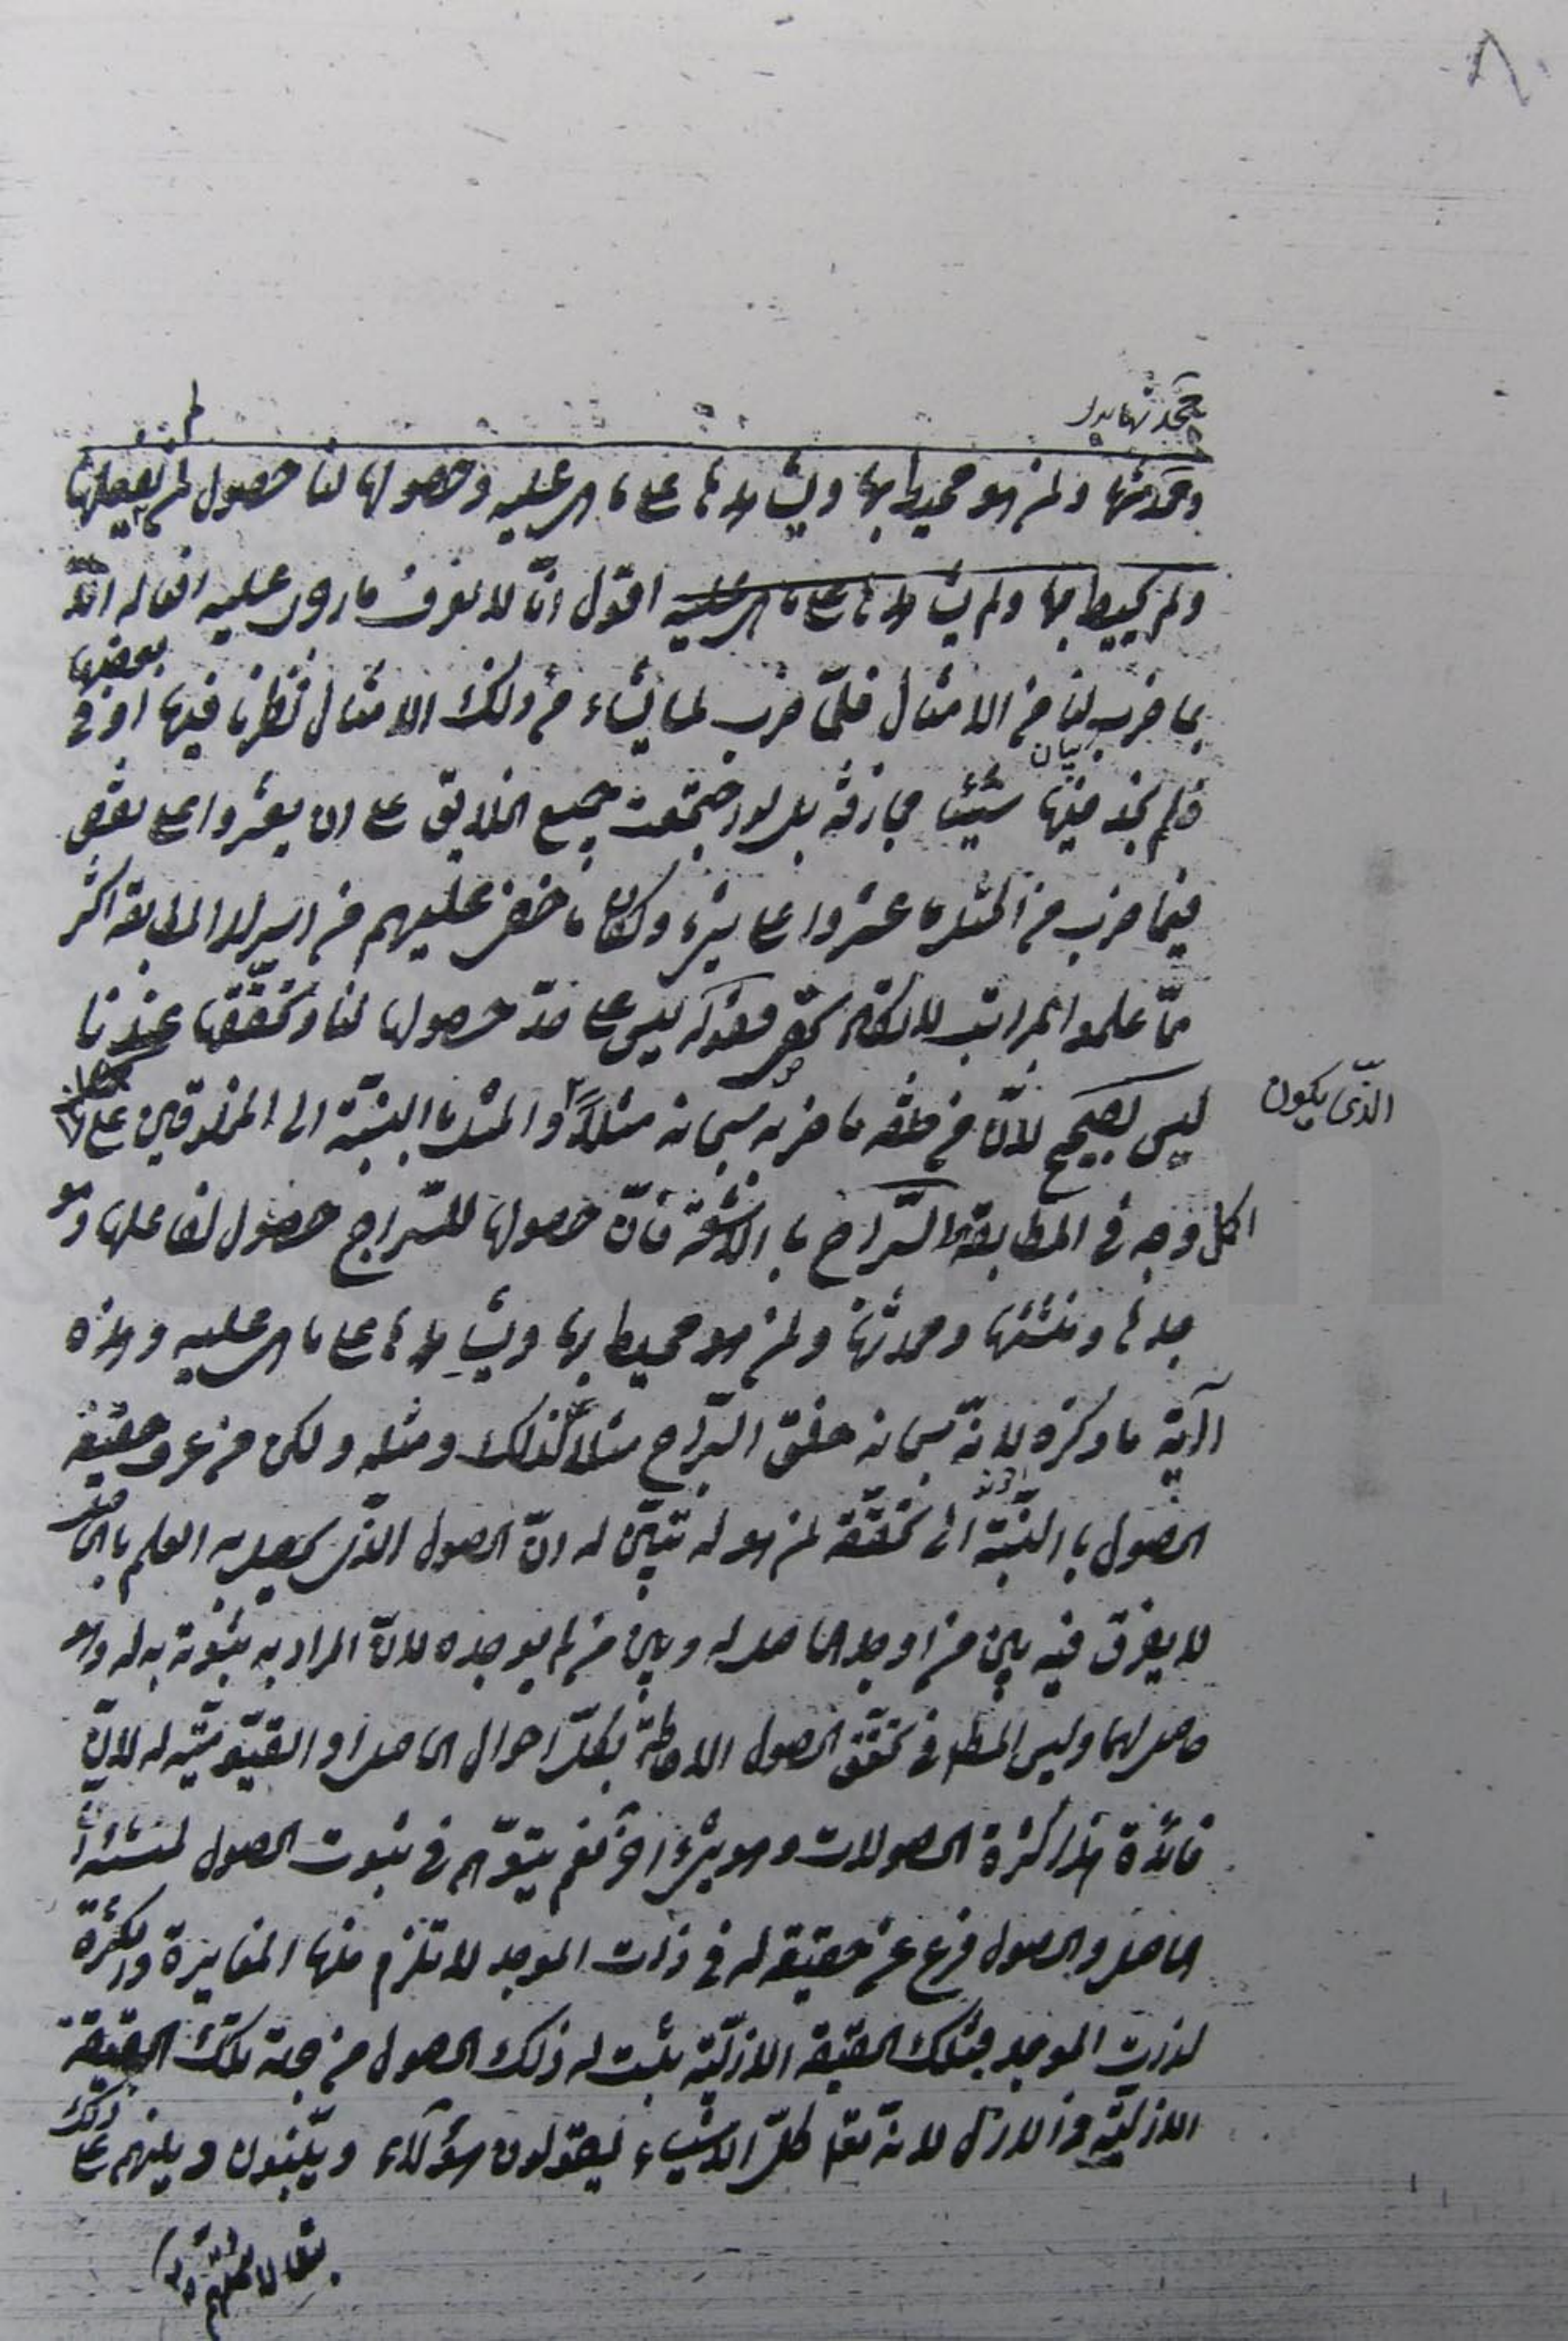 ومحدثها ولمن هو محيط بها ويشاهدها على ما هي عليه وحصولها لنا حصول لمن لم يفعلها
ولم يحيط بها ولم يشاهدها على ما هي عليه اقول انا لا نعرف ما هو عليه افعاله الا
بما ضرب لنا من الامثال فلما ضرب لما يشاء من ذلك الامثال نظرنا فيها او في بعضها
فلم نجد فيها شيئا مجازفة بل لو اجتمعت جميع الخلايق على ان يعثروا على نقص
فيما ضرب من المثل ما عثروا على شيء وكان ما خفي عليهم من اسرار المطابقة اكثر
مما علموا بمراتب لا تكاد تحصى فقوله ليس على حد حصولها لنا وتحققها عندنا
ليس بصحيح لان من خلقه ما ضربه سبحانه مثلا والمثل بالنسبة الى المخلوقين على
الذي يكون
اكمل وجه في المطابقة السراج بالاشعة فان حصولها للسراج حصول لفاعلها وهو
جاعلها ومنشئها ومحدثها ولمن هو محيط بها ويشاهدها على ما هي عليه وهذه
آية ما ذكره لانه سبحانه خلق السراج مثلا لذلك ومثله ولكن من عرف حقيقة
الحصول بالنسبة الى تحققه لمن هو له تبين له ان الحصول الذي يحصل به العلم بالحاصل
لا يفرق فيه بين من اوجد الحاصل له وبين من لم يوجده لان المراد به ثبوته به له وهو
حاصل لهما وليس المناط في تحقق الحصول الاحاطة بكل احوال الحاصل او القيومية له لان
فائدة هذا كثرة الحصولات وهو شيء آخر نعم يتوهم في ثبوت الحصول لمنشئه ان
الحاصل والحصول فرع عن حقيقة له في ذات الموجد لا تلزم منها المغايرة والكثرة
لذات الموجد فبتلك الحقيقة الازلية يثبت له ذلك الحصول من جهة تلك الحقيقة
الازلية في الازل لانه تعالى كل الاشياء ليقولون هؤلاء ويثبتون ويلزمهم على ذلك